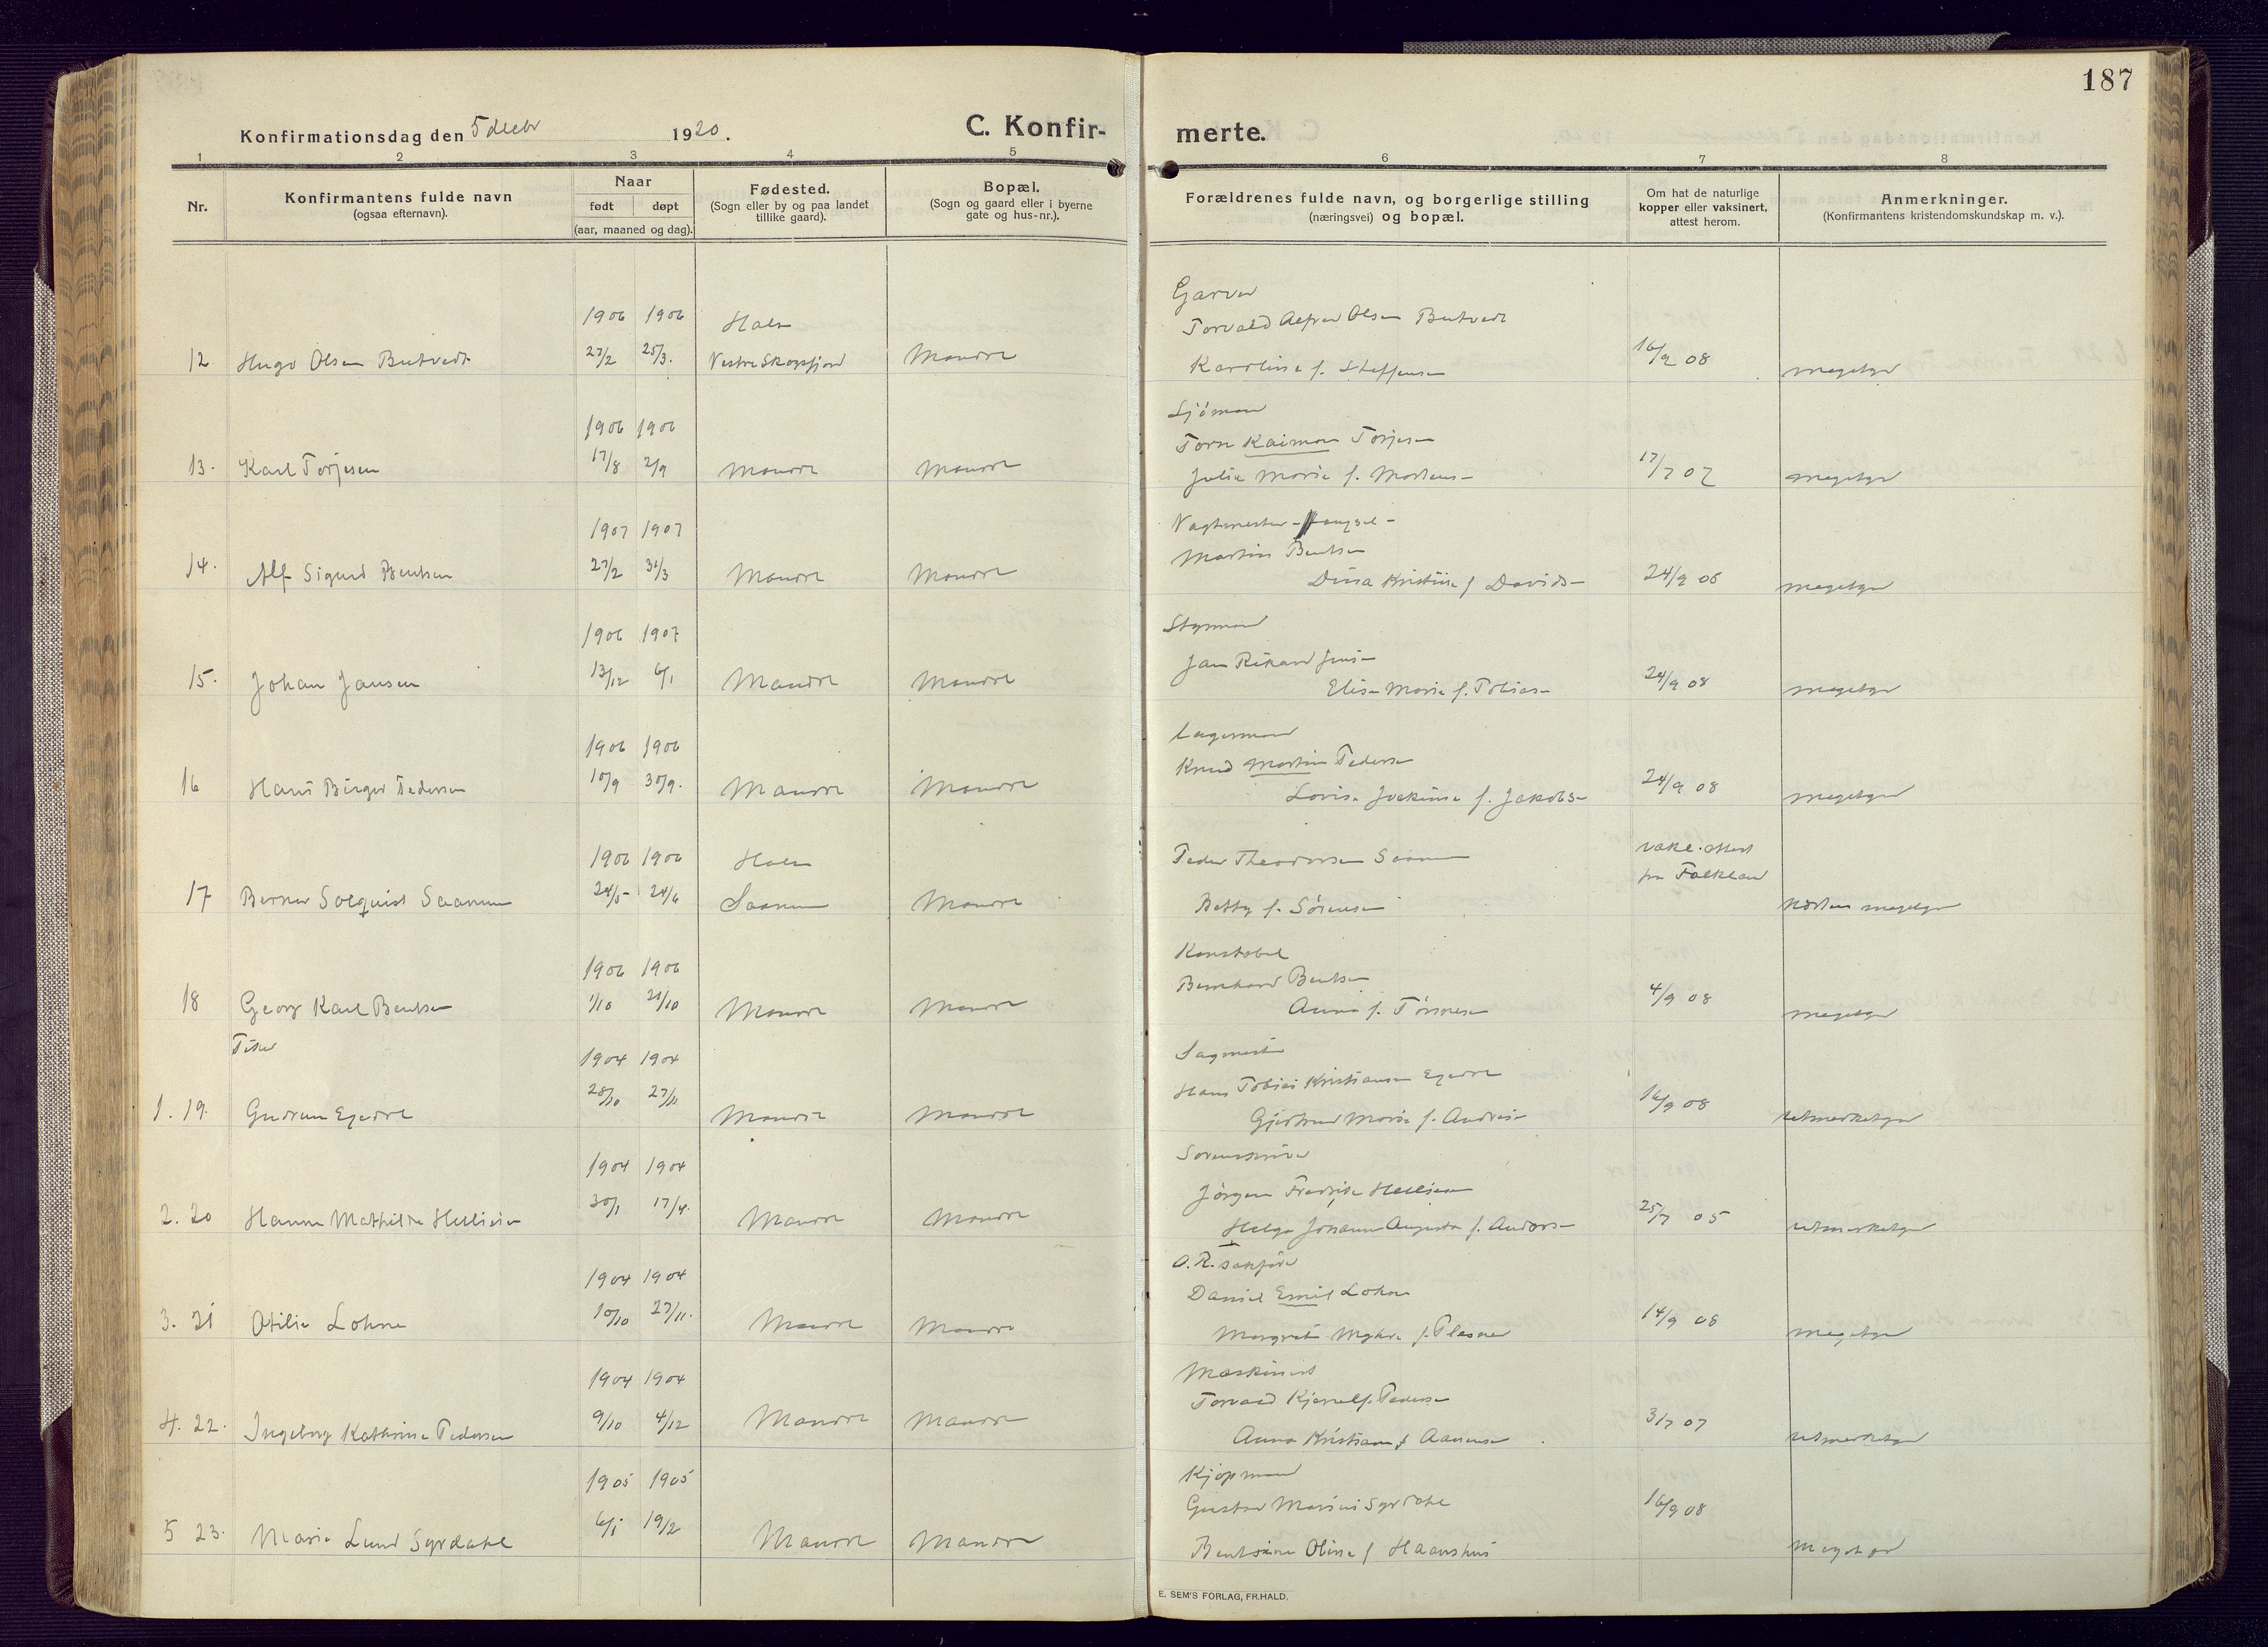 187
Konfirmationsdag den 5 decbr 1920.
C. Konfir-
merte.
1 2 3 4 5 6 7 8
Nr.
Konfirmantens fulde navn
(ogsaa efternavn).
Naar
født døpt
(aar, maaned og dag).
Fødested.
(Sogn eller by og paa landet
tillike gaard).
Bopæl.
(Sogn og gaard eller i byerne
gate og hus-nr.).
Forældrenes fulde navn, og borgerlige stilling
(næringsvei) og bopæl.
Om hat de naturlige
kopper eller vaksinert,
attest herom.
Anmerkninger.
(Konfirmantens kristendomskundskap m. v.).
Garver
1906 1906 Halse Torvald Alfred Olsen Butvedt
12 Hugo Olsen Butvedt 27/2 25/3. Vestre Skogsfjord Mandal Karoline f. Steffensen 16/9 08 megetgod
Sjömand
1906 1906 Torn Kaiman Torjesen
13. Karl Torjesen 17/8 2/9 Mandal Mandal Julie Marie f. Mortens- 17/7 07 megetgod
1907 1907 Vagtmester -
14. Alf Sigurd Bentsen 27/2 31/3 Mandal Mandal Martin Bentsen
Dina Kristine f Davids- 24/9 08 megetgod
Styrmand
1906 1907 Jan Rikard Jensen
15. Johan Jansen 13/12 6/1 Mandal Mandal Elise Marie f. Tobias- 24/9 08 megetgod
Lagermand
1906 1906 Knud Martin Pedersen
16 Hans Birger Pedersen 10/9 30/9. Mandal Mandal Lovise Joakime f. Jakobs- 24/9 08 megetgod
1906 1906 Halse Peder Theodorsen Saanum vakc. attest
fra Falkland
17 Berner Solquist Saanum 24/5 24/6 Saanum Mandal Betty f. Sörensen næsten megetgod
Konstabel
1906 1906 Bernhard Bentsen
18 Georg Karl Bentsen 1/10 21/10 Mandal Mandal Anna f. Tönnesen 4/9 08 megetgod
Piker
1904 1904 Sagmester
Hans Tobias Kristiansen Egedal
1. 19. Gudrun Egedal 28/10 27/11 Mandal Mandal Gjertrud Marie f. Andreas- 16/9 08 utmerketgod
1904 1904 Sorenskriver
Jörgen Fredrik Hellisen
2. 20 Hanna Mathilde Hellisen 30/1 17/4. Mandal Mandal Helga Johanne Augusta f. Anders- 25/7 05 utmerketgod
O.R. sakfører
1904 1904 Daniel Emil Lohne
3. 21 Otilie Lohne 10/10 27/11. Mandal Mandal Margrete Myhre f. Plesner 14/9 08 megetgod
Maskinist
1904 1904 Torvald Kjerulf Pedersen
4. 22. Ingeborg Kathrine Pedersen 9/10 4/12 Mandal Mandal Anna Kristiane f Aanensen 3/7 07 utmerketgod
Kjøpmand
1905 1905 Gustav Marius Syrdahl
5 23. Marie Lund Syrdahl 6/1 19/2 Mandal Mandal Bentsine Oline f Haanshus 16/9 08 Meget god
E. SEM'S FORLAG, FR.HALD.